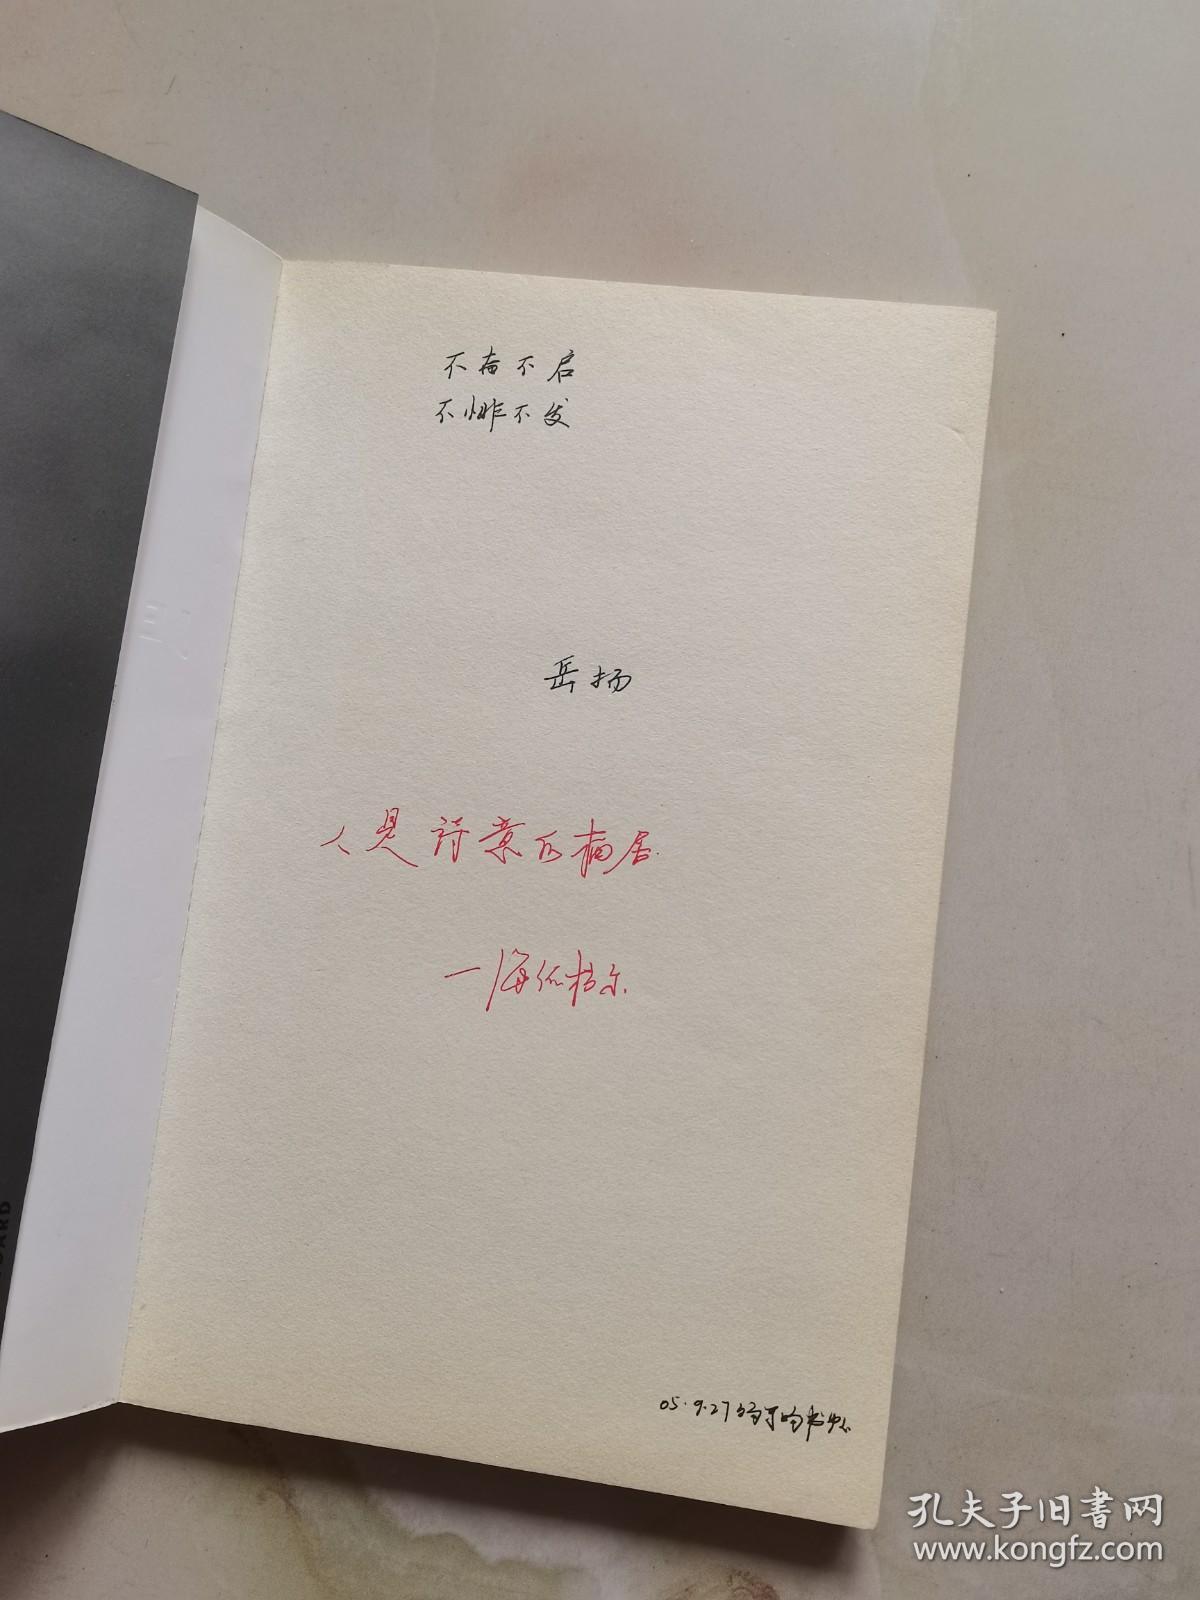 不奋不启
不悱不发
岳扬
人是诗意的栖居.
一海德格尔.
05.9.27 购于 书中心
孔夫子旧书网
www.kongfz.com
DARD